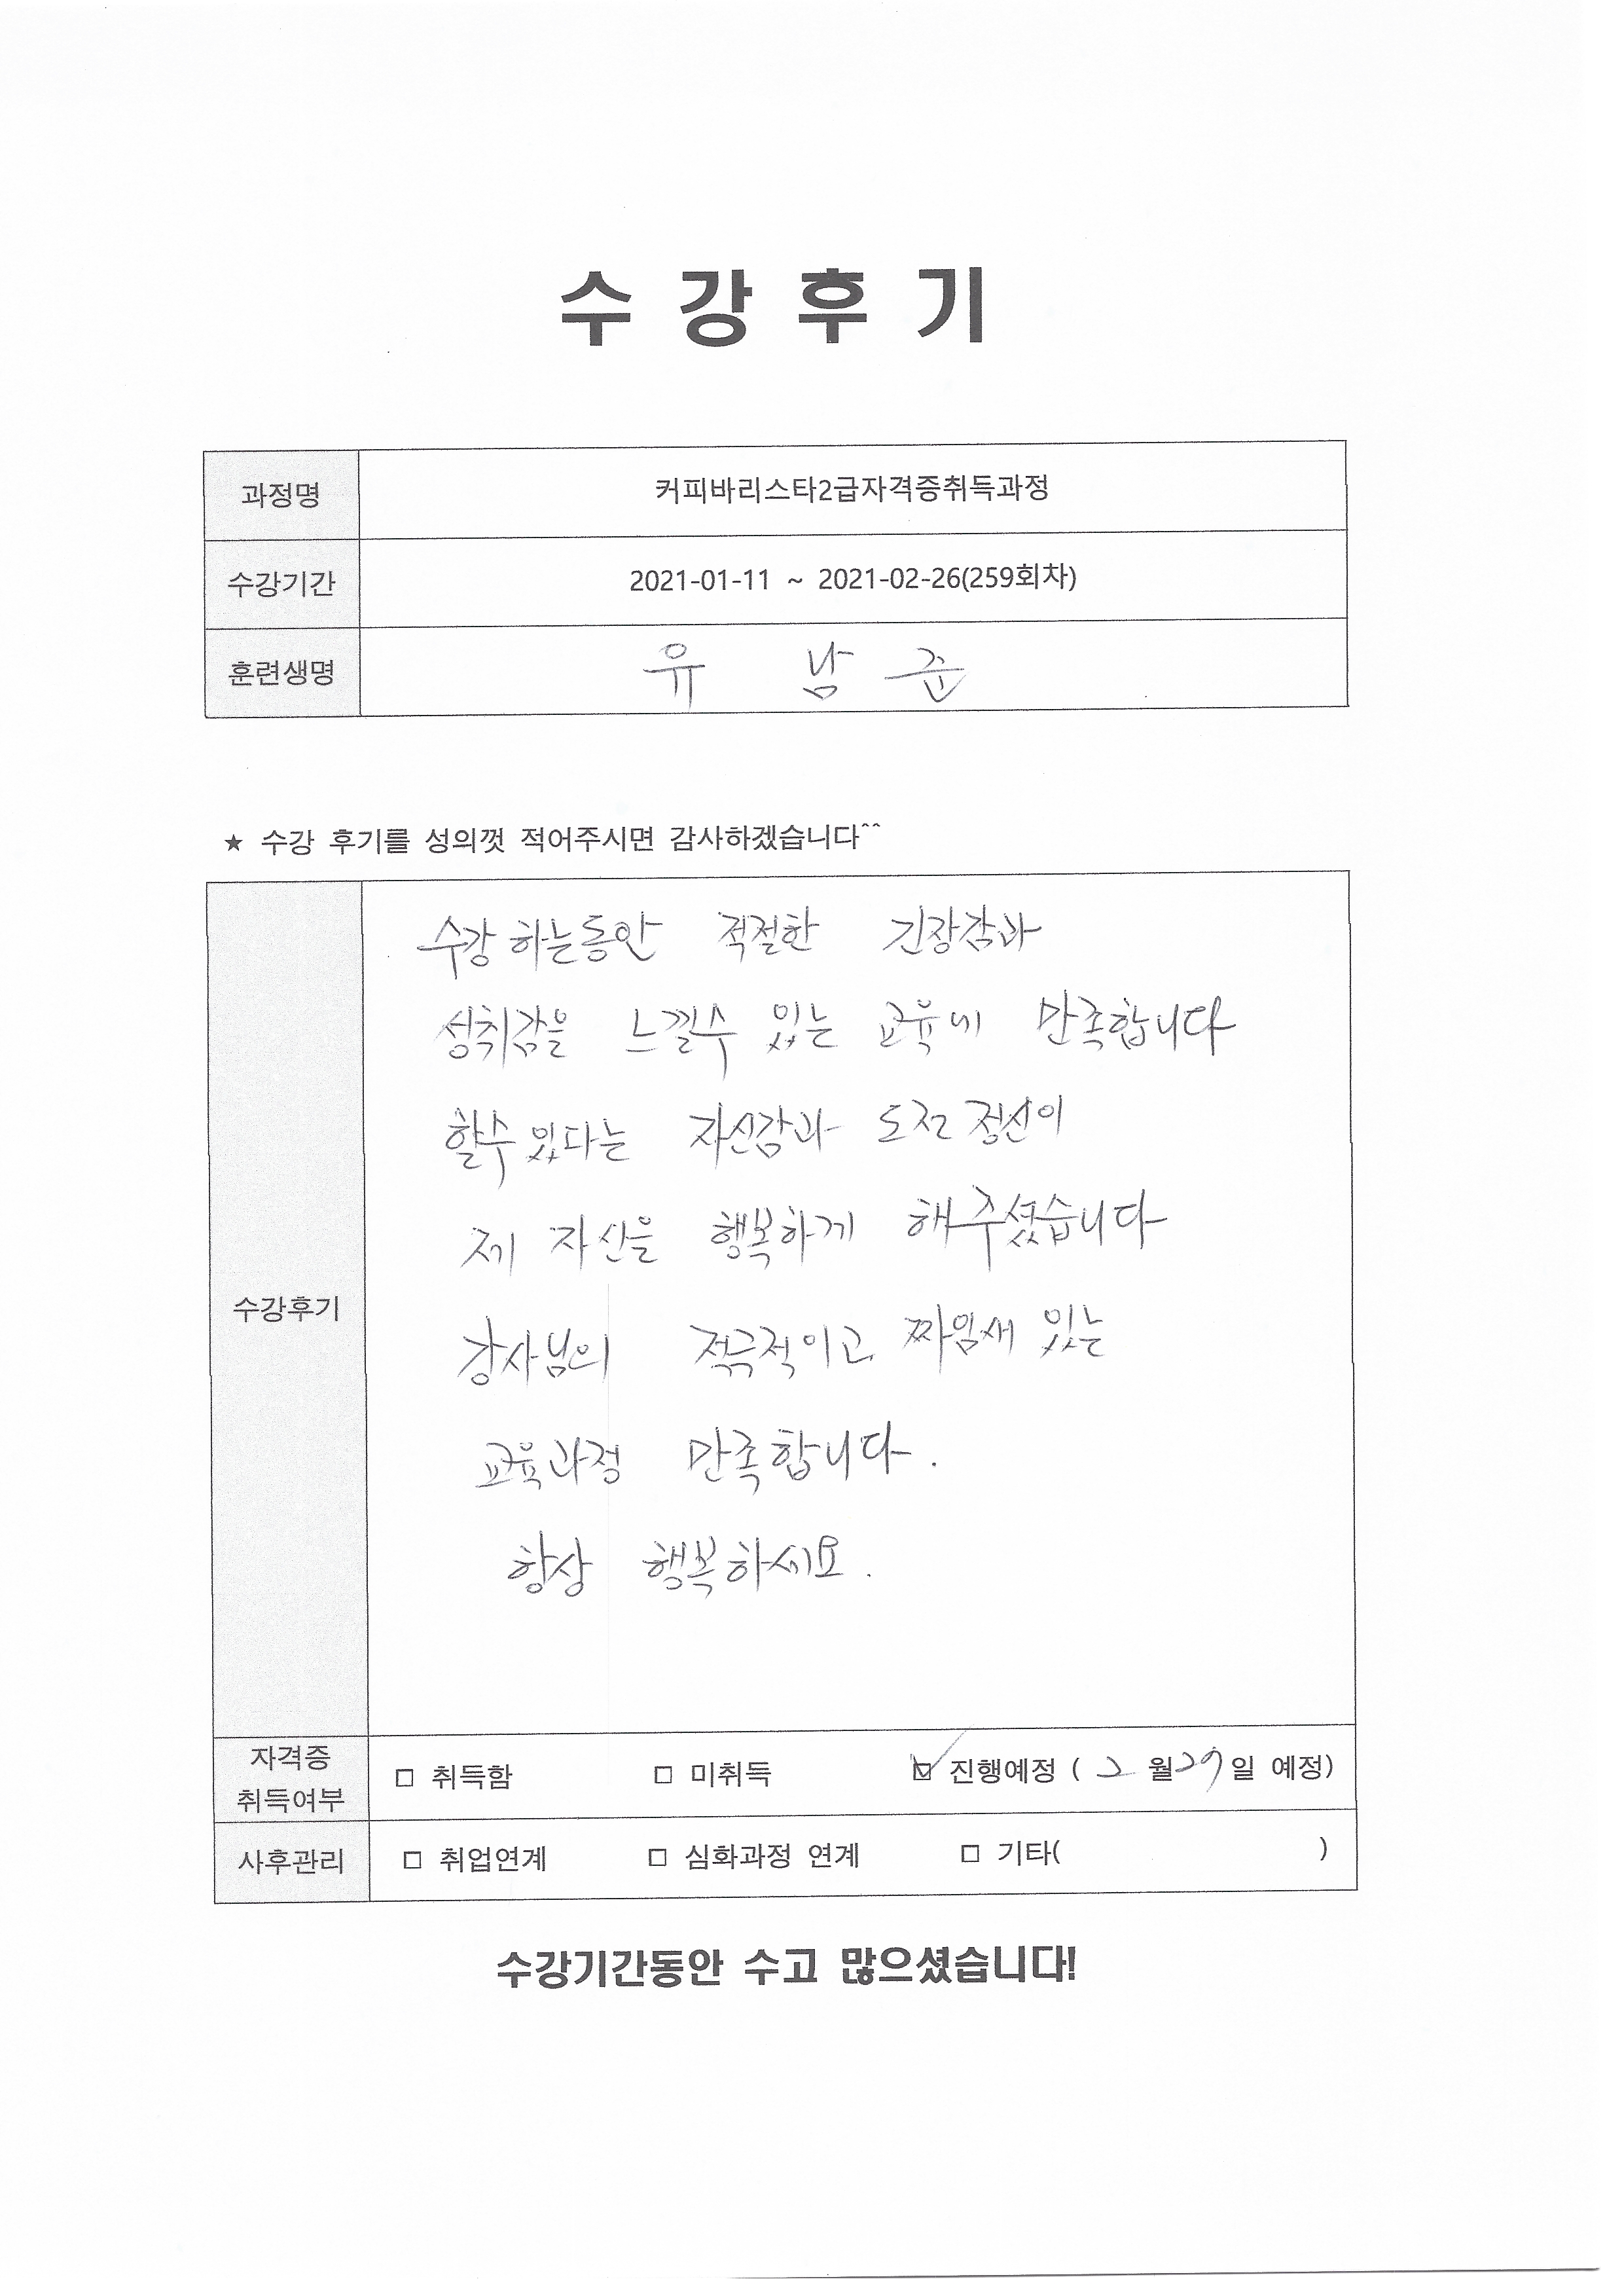 수강후기
과정명 커피바리스타2급자격증취득과정
수강기간 2021-01-11 ~ 2021-02-26(259회차)
훈련생명 유 남 준
★ 수강 후기를 성의껏 적어주시면 감사하겠습니다^^
수강하는동안 적절한 긴장감과
성취감을 느낄수 있는 교육에 만족합니다
할수있다는 자신감과 도전정신이
제 자신을 행복하게 해주셨습니다
수강후기
강사님의 적극적이고 짜임새 있는
교육과정 만족합니다.
항상 행복하세요.
자격증
취득여부
□ 취득함 □ 미취득 ☑ 진행예정 ( 2 월 27 일 예정)
사후관리 □ 취업연계 □ 심화과정 연계 □ 기타( )
수강기간동안 수고 많으셨습니다!